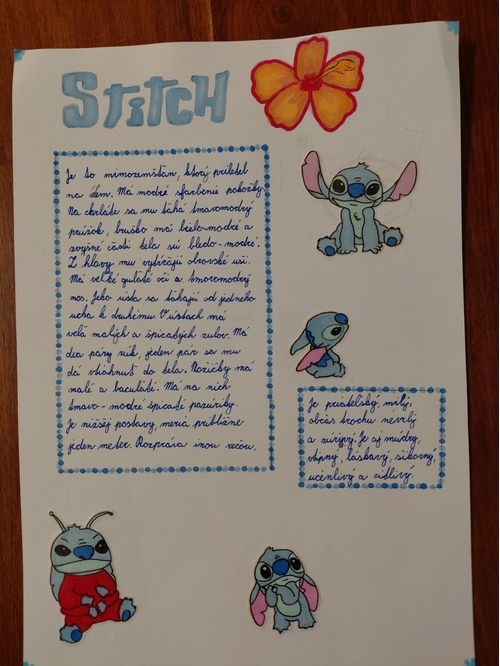 STITCH
Je to mimozemšťan, ktorý priletel
na Zem. Má modré sfarbenie pokožky.
Na chrbáte sa mu ťahá tmavomodrý
prúžok, bruško má bielo-modré a
zvyšné časti tela sú bledo-modré.
Z hlavy mu vytŕčajú obrovské uši.
Má veľké guľaté oči a tmavomodrý
nos. Jeho ústa sa ťahajú od jedného
ucha k druhému. V ústach má
veľa malých a špicatých zubov. Má
dva páry rúk, jeden pár sa mu
dá vtiahnuť do tela. Nožičky má
malé a bacuľaté. Má na nich
tmavo-modré špicaté pazúriky.
Je nižšej postavy, meria približne
jeden meter. Rozpráva inou rečou.
Je priateľský, milý,
občas trochu nervlý
a zúrivý. Je aj múdry,
vtipný, láskavý, šikovný,
učenlivý a citlivý.